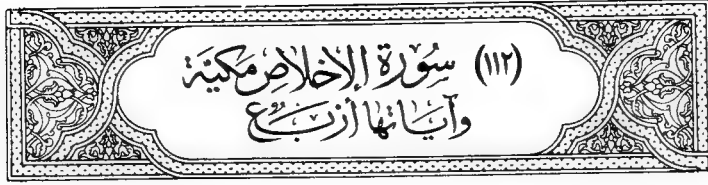 (١١٢) سُورَة الإخلاص مكيَّة
وآياتها أربَع